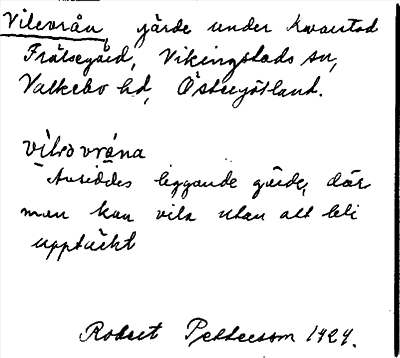 Vilevrån, gärde under Kvarstad
Frälsegård, Vikingstads sn,
Valkebo hd, Östergötland.
vilǝvrána
Avsides liggande gärde, där
man kan vila utan att bli
upptäckt
Robert Pettersson 1929.